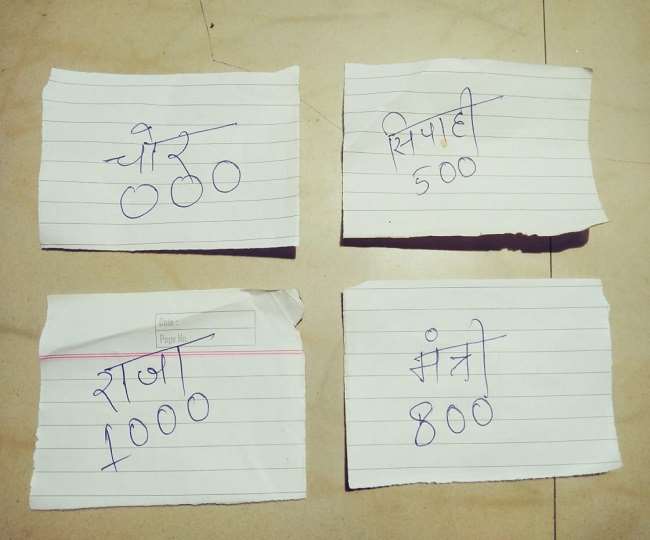 चोर
000
सिपाही
500
Date :
Page No.
राजा
1000
मंत्री
800